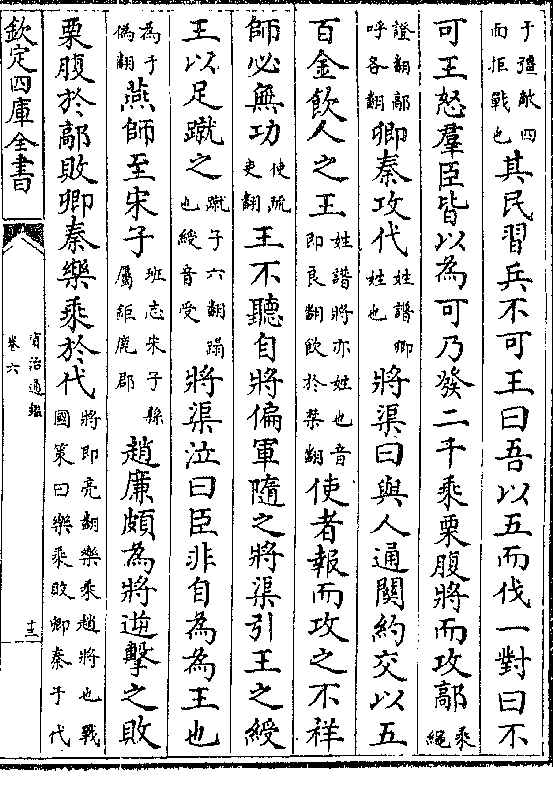 于彊敵四而拒戰也其民習兵不可王曰吾以五而伐一對曰不
可王怒羣臣皆以為可乃發二千乘栗腹將而攻鄗乘繩
證翻鄗呼各翻卿秦攻代姓譜卿姓也將渠曰與人通關約交以五
百金飲人之王姓譜將亦姓也音即良翻飲於禁翻使者報而攻之不祥
師必無功使疏吏翻王不聽自將偏軍隨之將渠引王之綬
王以足蹴之蹴子六翻蹋也綬音受將渠泣曰臣非自為為王也
為于偽翻燕師至宋子班志宋子縣屬鉅鹿郡趙廉頗為將逆擊之敗
栗腹於鄗敗卿秦樂乘於代將即亮翻樂乘趙將也戰國策曰樂乘敗卿秦于代
欽定四庫全書
資治通鑑
卷六
十三